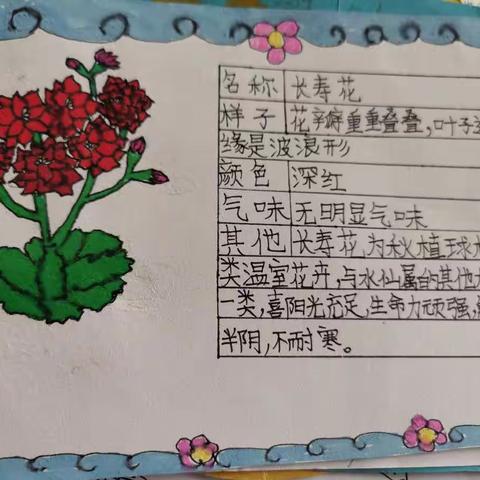 名称 长寿花
样子 花瓣重重叠叠,叶子
缘是波浪形
颜色 深红
气味 无明显气味
其他 长寿花,为秋植球
类温室花卉,与水仙属的其他
一类,喜阳光充足,生命力顽强,
半阴,不耐寒。